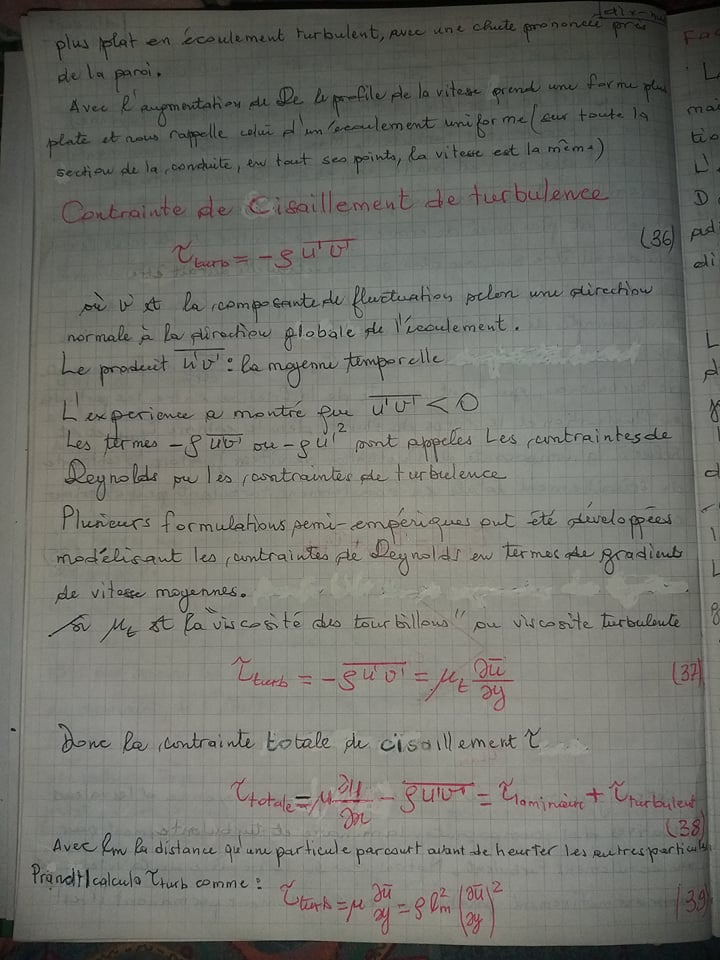 plus plat en écoulement turbulent, avec une chute prononcée près
de la paroi.
Avec l'augmentation de Re le profile de la vitesse prend une forme plus
plate et nous rappelle celui d'un écoulement uniforme (sur toute la
section de la conduite, en tout ses points, la vitesse est la même)
Contrainte de Cisaillement de turbulence
τ_turb = -ρ \overline{u'v'} (36)
où v' est la composante de fluctuation selon une direction
normale à la direction globale de l'écoulement.
Le produit \overline{u'v'} : la moyenne temporelle
L'experience a montré que \overline{u'v'} < 0
Les termes -ρ \overline{u'v'} ou -ρ \overline{u'}² sont appelées Les contraintes de
Reynolds ou les contraintes de turbulence
Plusieurs formulations semi-empériques ont été développées
modélisant les contraintes de Reynolds en termes de gradients
de vitesse moyennes.
Si μ_t est la "viscosité des tourbillons" ou viscosite turbulente
τ_turb = -\overline{ρu'v'} = μ_t ∂ū/∂y (37)
Donc la contrainte totale de cisaillement τ
τ_totale = μ ∂u/∂x - \overline{ρu'v'} = τ_laminaire + τ_turbulent
(38)
Avec lm la distance qu'une particule parcourt avant de heurter les autres particules
Prandtl calcula τ_turb comme :
τ_turb = μ ∂ū/∂y = ρ l_m² (∂ū/∂y)² (39)